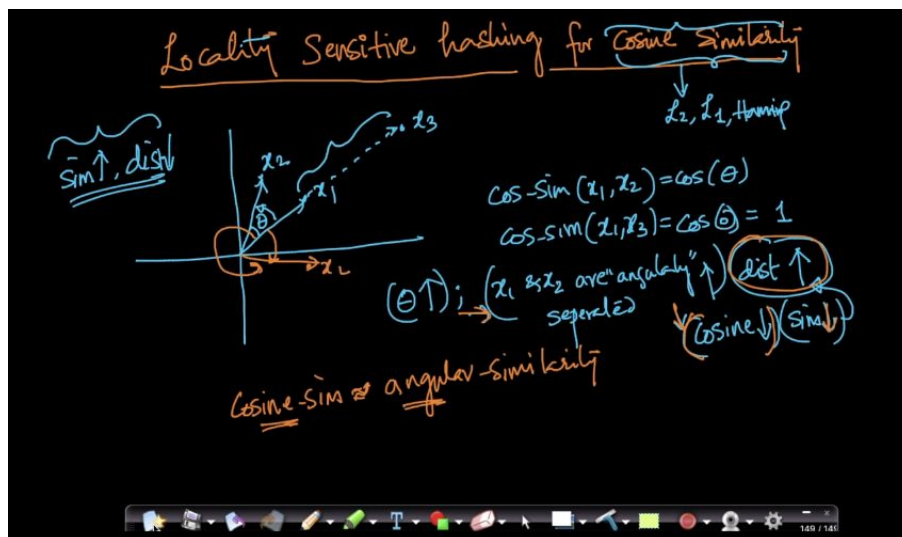 Locality Sensitive hashing for Cosine Similarity
L2, L1, Hamming
sim↑, dist↓
x2
x1
x3
θ
x2
cos-sim(x1,x2)=cos(θ)
cos-sim(x1,x3)=cos(0)=1
(θ↑); →(x1 & x2 are "angularly" ↑) dist ↑
seperated
(cosine↓)(sim↓)
Cosine-sim ≈ angular-similarity
T
149 / 149